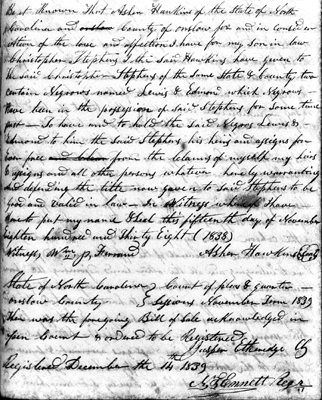 Be it Known That Asher Hawkins of the State of North
Carolina and onslow County of onslow for and in Consider
ation of the love and affection I have for my Son in law
Christopher Stephens I the Said Hawkins have given to
the Said Christopher Stephens of the Same State & County two
certain Negroes named Lewis & Edmond which Negroes
have been in the possession of Said Stephens for Some time
past — To have and to hold the Said Negroes Lewis &
Edmond to him the Said Stephens his heirs and assigns for
ever free from the Claims of myself my heirs
& assigns and all other persons whatever hereby warranting
and defending the title now given to Said Stephens to be
good and Valid in law — In Witness whereof I have
hereto put my name & Seal this fifteenth day of November
Eighteen hundred and Thirty Eight (1838)
Witness, Wm D. Asher Hawkins Seal
State of North Carolina } Court of pleas & quarter
onslow County } Sessions November Term 1839
Then was the foregoing Bill of Sale acknowledged in
open Court & ordered to be Registered
Jasper Etheridge Clk
Registered December the 14th 1839
Emmett Regr